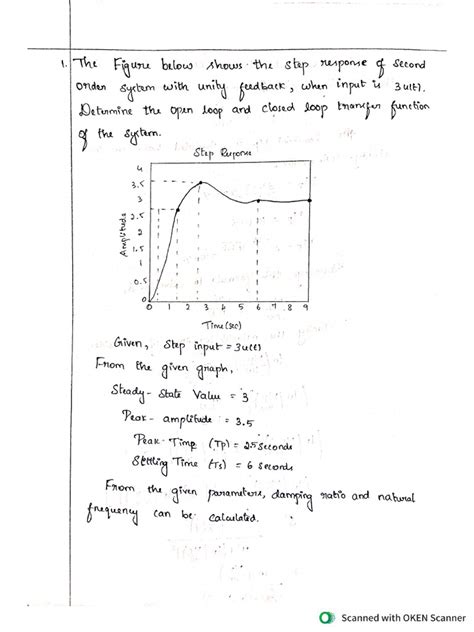 1. The Figure below shows the step response of second
order system with unity feedback, when input is 3u(t).
Determine the open loop and closed loop transfer function
of the system.
Step Response
4
3.5
3
2.5
2
1.5
1
0.5
0
Amplitude
0 1 2 3 4 5 6 7 8 9
Time (sec)
Given, Step input = 3u(t)
From the given graph,
Steady-State Value = 3
Peak-amplitude = 3.5
Peak-Time (Tp) = 2.5 seconds
Settling Time (Ts) = 6 seconds
From the given parameters, damping ratio and natural
frequency can be calculated.
Scanned with OKEN Scanner